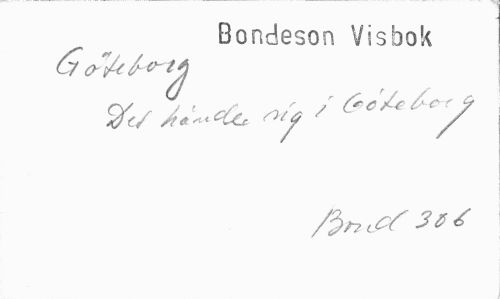 Bondeson Visbok
Göteborg
Det hände sig i Göteborg
Bond 306